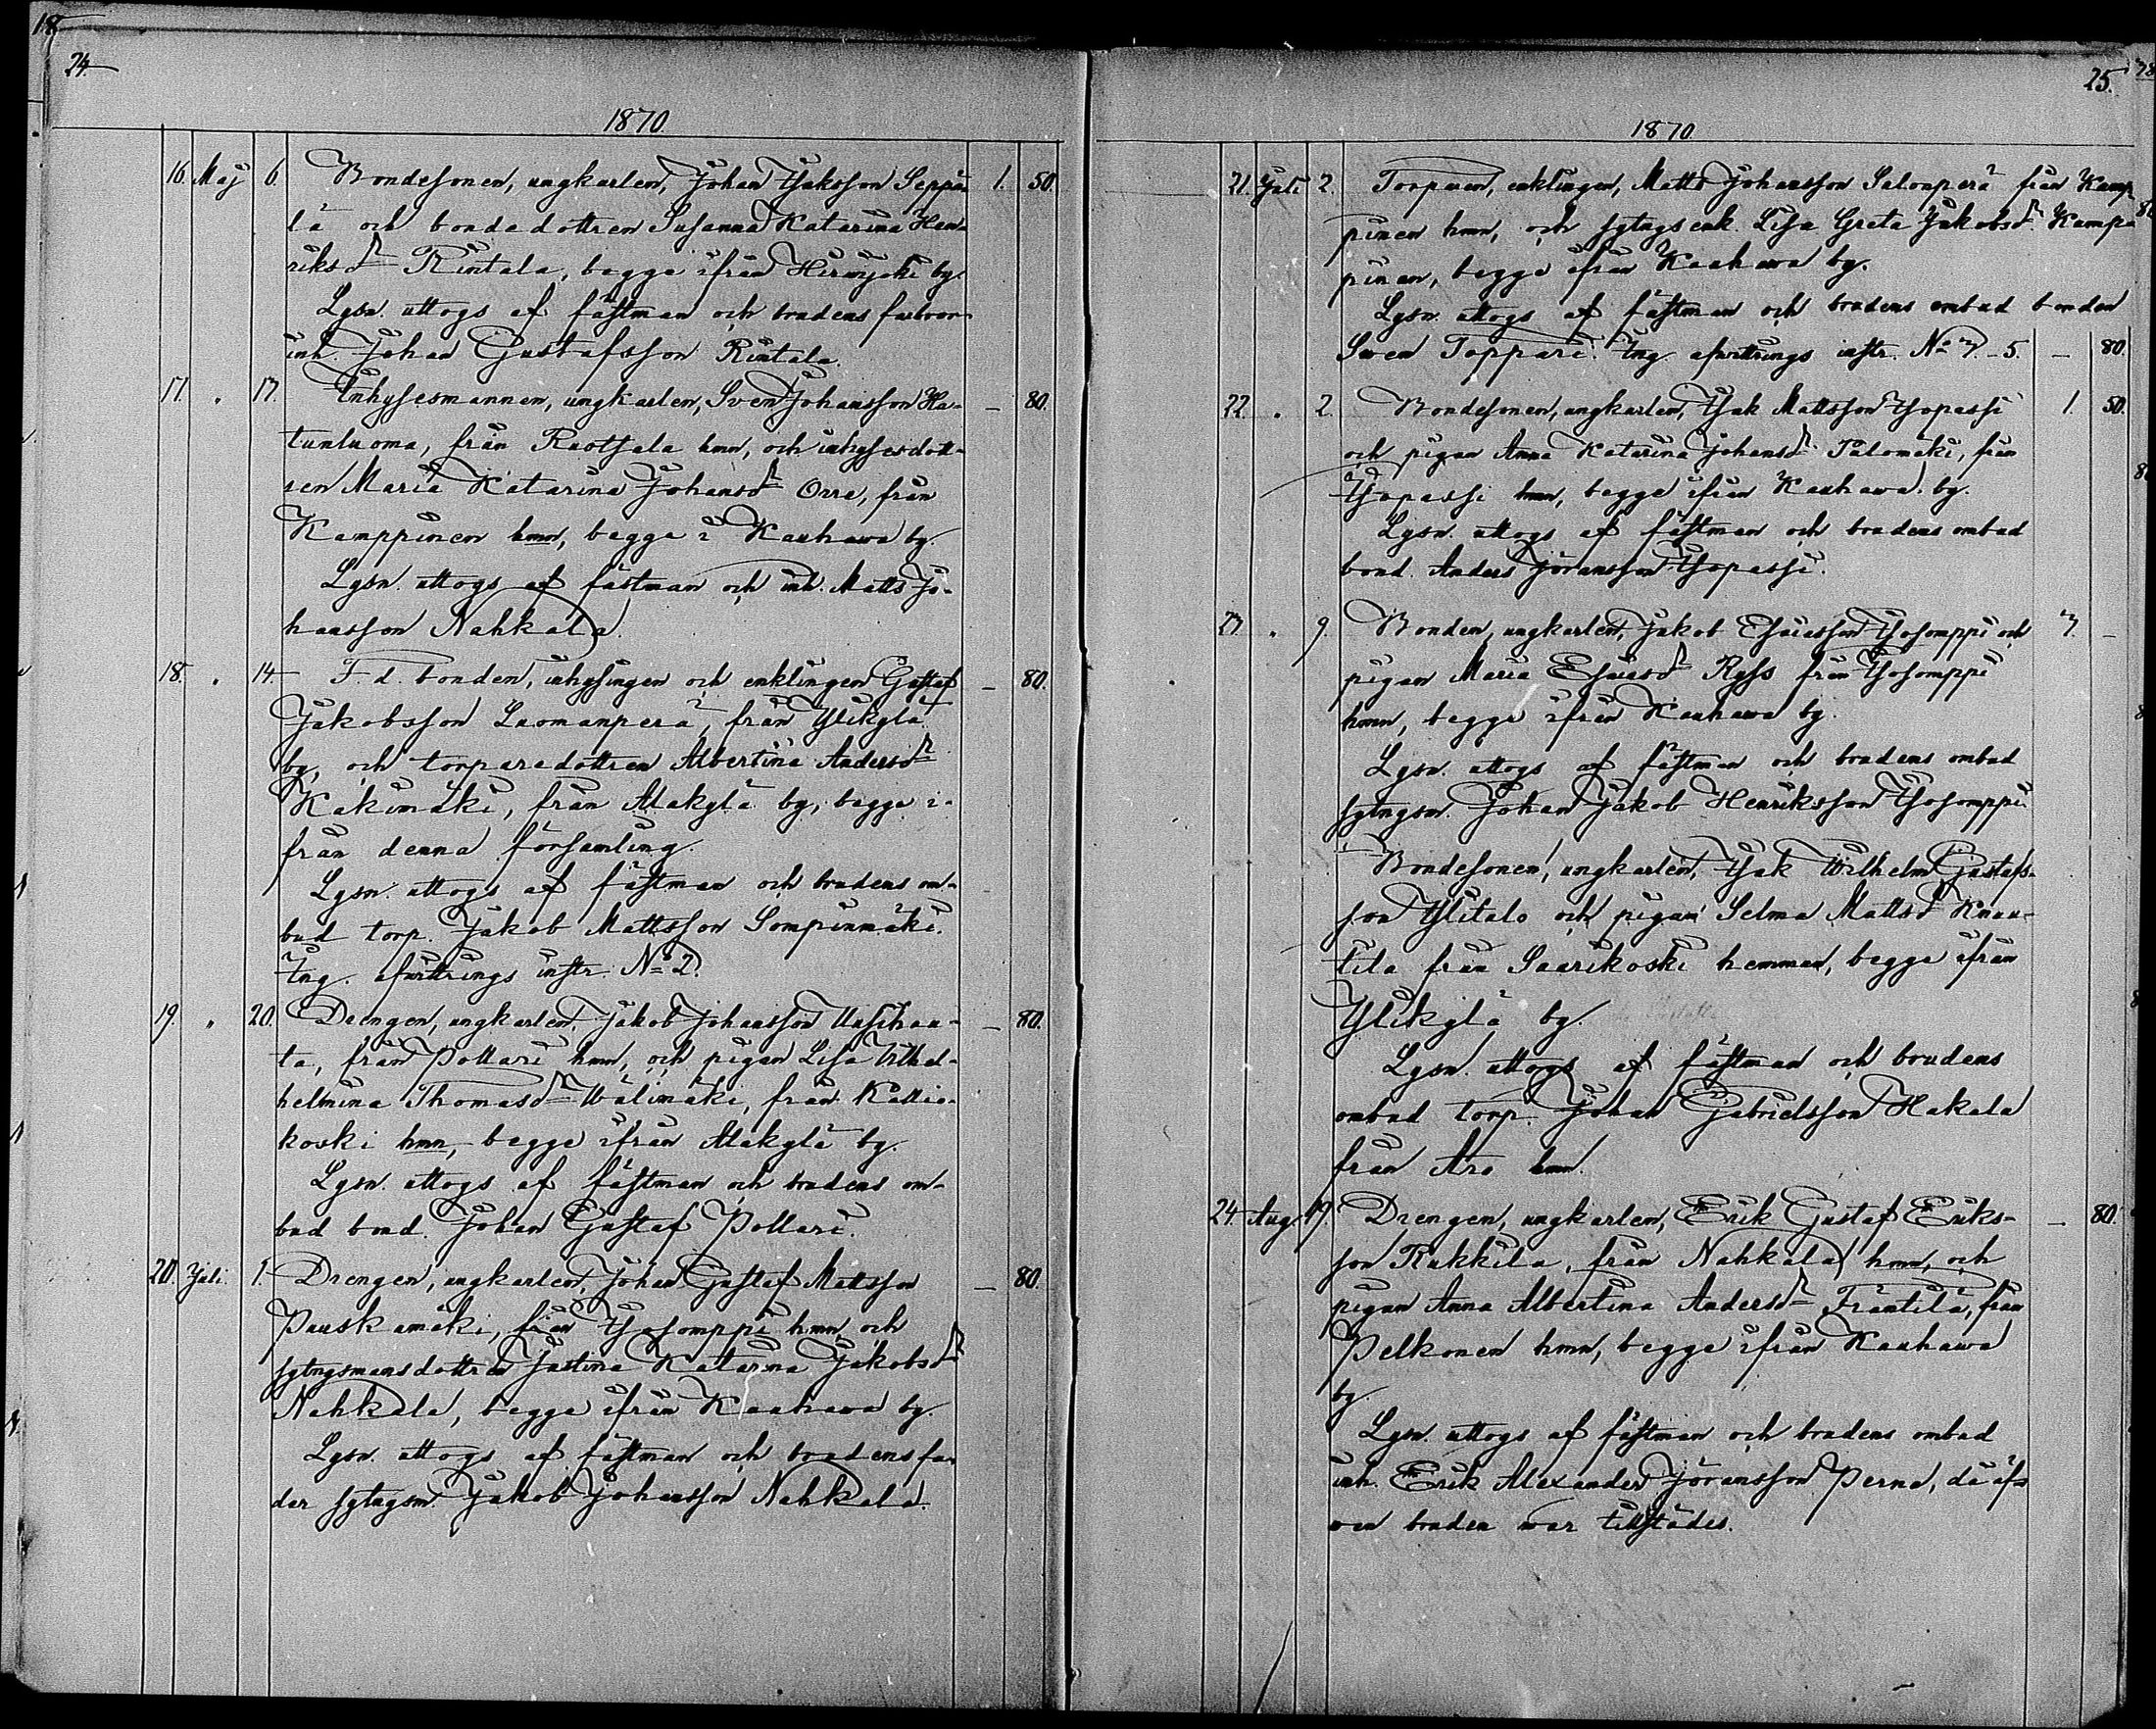 24.
1870.
16. Maj 6. Bondesonen, ungkarlen, Johan Isaksson Seppä- 1. 50.
lä och bondedottren Susanna Katarina Hen-
riksdr Rintala, begge ifrån Hirwijoki by.
Lysn. uttogs af fästman och brudens farbror
inh. Johan Gustafsson Rintala.
17. " 13. Inhysesmannen, ungkarlen, Sven Johansson Ha- — 80.
tunluoma, från Ruotsala hmn, och inhysesdott-
ren Maria Katarina Johansdr Orre, från
Kamppinen hmn, begge i Kauhawa by.
Lysn. uttogs af fästman och inh. Matts Jo-
hansson Nahkala.
18. " 14 F. d. bonden, inhysingen och enklingen Gustaf — 80.
Jakobsson Luomanperä, från Ylikylä
by, och torparedottren Albertina Andersdr
Kakimäki, från Alakylä by, begge i-
från denna församling.
Lysn. uttogs af fästman och brudens om-
bud torp. Jakob Mattsson Sompinmäki.
Ing. afwittrings instr. No 2.
19. " 20. Drengen, ungkarlen, Jakob Johansson — 80.
ta, från Pollari hmn, och pigan Lisa Wil-
helmina Thomasdr Wälimäki, från Kallio-
koski hmn, begge ifrån Alakylä by.
Lysn. uttogs af fästman och brudens om-
bud bond. Johan Gustaf Pollari.
20. Juli. 1. Drengen, ungkarlen, Johan Gustaf Mattsson — 80.
Pauskamäki, från Isosomppi hmn, och
sytngsmansdottren Justina Katarina Jakobsdr
Nahkala, begge ifrån Kauhawa by.
Lysn. uttogs af fästman och brudens fa-
der sytngsm. Jakob Johansson Nahkala.
25.
1870.
21. Juli 2. Torparen, enklingen, Matts Johansson Saloaperä från Kamp-
pinen hmn, och sytngsenk. Lisa Greta Jakobsdr Kamp-
pinen, begge ifrån Kauhawa by.
Lysn. uttogs af fästman och brudens ombud bonden
Swen Toppari. Ing. afwittrings instr. No 3. - 5. — 80.
22. " 2. Bondesonen, ungkarlen, Isak Mattsson Isopassi 1. 50.
och pigan Anna Katarina Johansdr Palomäki, från
Isopassi hmn, begge ifrån Kauhawa by.
Lysn. uttogs af fästman och brudens ombud
bond. Anders Jöransson Isopassi.
23. " 9. Bonden, ungkarlen, Jakob Esaiasson Isosomppi och 3. —
pigan Maria Esaiasdr Ryss från Isosomppi
hmn, begge ifrån Kauhawa by.
Lysn. uttogs af fästman och brudens ombud
sytngsm. Johan Jakob Henriksson Isosomppi.
Bondesonen, ungkarlen, Isak Wilhelm Gustafs-
son Ylitalo och pigan Selma Mattsd Knuu-
tila från Saarikoski hemman, begge ifrån
Ylikylä by.
Lysn. uttogs af fästman och brudens
ombud torp. Johan Gabrielsson Hakala
från Aro hmn.
24. Aug. 19. Drengen, ungkarlen, Erik Gustaf Eriks- — 80.
son Rukkila, från Nahkala hmn, och
pigan Anna Albertina Andersdr Fräntilä, från
Pelkonen hmn, begge ifrån Kauhawa
by.
Lysn. uttogs af fästman och brudens ombud
inh. Erik Alexander Jöransson Perna, då äf-
wen bruden war tillstädes.